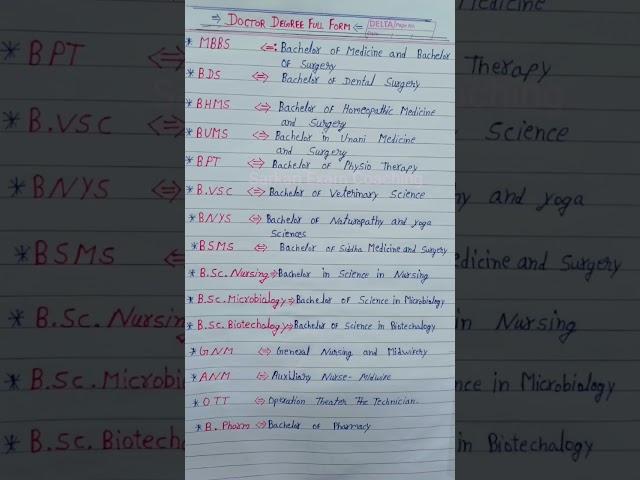 ⇒ DOCTOR DEGREE FULL FORM ⇐ DELTA Page No.
* MBBS ⇔: Bachelor of Medicine and Bachelor
Of Surgery
* BDS ⇔ Bachelor of Dental Surgery
* BHMS ⇔ Bachelor of Homeopathic Medicine
and Surgery
* BUMS ⇔ Bachelor in Unani Medicine
and Surgery
* BPT ⇔ Bachelor of Physio Therapy
Sarkari Exam Coaching
* B.VSC ⇔ Bachelor of Veterinary Science
* BNYS ⇔ Bachelor of Naturopathy and yoga
Sciences
* BSMS ⇔ Bachelor of Siddha Medicine and Surgery
* B.Sc. Nursing ⇒ Bachelor in Science in Nursing
* B.Sc. Microbialogy ⇒ Bachelor of Science in Microbialogy
* B.Sc. Biotechalogy ⇒ Bachelor of Science in Biotechalogy
* GNM ⇔ General Nursing and Midwirery
* ANM ⇔ Auxiliary Nurse- Midwire
* OTT ⇔ Operation Theater The Technician.
* B. Pharm ⇔ Bachelor of Pharmacy
* BPT ⇔ Therapy
* B.VSC ⇔ Science
* BNYS ⇔ and yoga
* BSMS edicine and Surgery
* B.Sc. Nursin in Nursing
* B.Sc. Microbi nce in Microbialogy
* B.Sc. Biotech in Biotechalogy